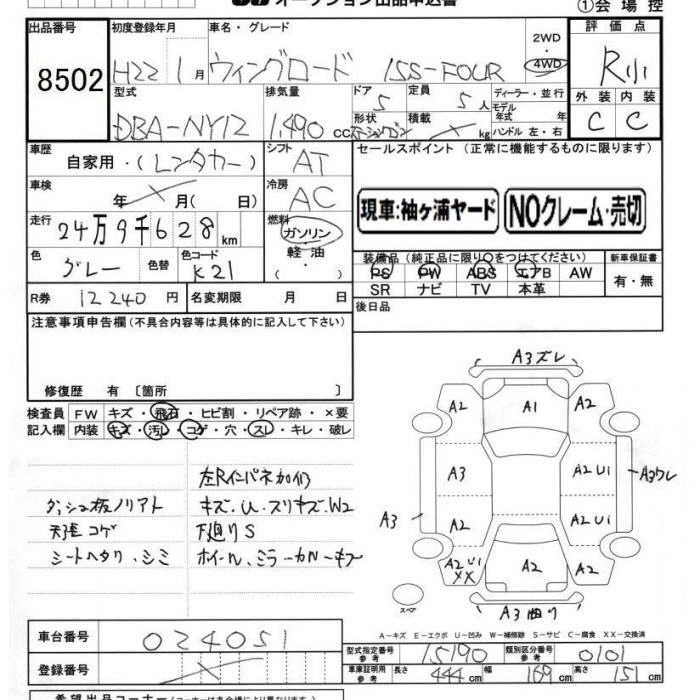 オークション出品申込書 ①会場控
出品番号 初度登録年月 車名・グレード 2WD 評価点
8502 H22 1月 ウィングロード 15S-FOUR 4WD R小
型式 排気量 ドア 5 定員 5人 ディーラー・並行 外装 内装
DBA-NY12 1,490cc 形状 ステーションワゴン 積載 kg モデル年式 年 ハンドル 左・右 C C
車歴 自家用・(レンタカー) シフト AT セールスポイント (正常に機能するものに限ります)
車検 年 月(日) 冷房 AC
現車:袖ヶ浦ヤード NOクレーム・売切
走行 24万9千628km 燃料 ガソリン・軽油・( )
色 グレー 色替 色コード K21
装備品 (純正品に限り○をつけてください) 新車保証書
PS PW ABS エアB AW 有・無
SR ナビ TV 本革
R券 12240円 名変期限 月 日 後日品
注意事項申告欄(不具合内容等は具体的に記入して下さい)
修復歴 有 〔箇所 〕
検査員 FW キズ・飛石・ヒビ割・リペア跡・×要
記入欄 内装 キズ・汚レ・コゲ・穴・スレ・キレ・破レ
ダッシュ板ノリアト キズ・U・スリキズ・W2
天井コゲ 下廻りS
シートヘタリ・シミ
A3ズレ
A2 A1 A2
A3 A2 U1 A3ワレ
A3 A2 A2 U1
A2 U1 XX A2 A2
スペア A3曲り
A-キズ E-エクボ U-凹み W-補修跡 S-サビ C-腐食 XX-交換済
車台番号 024051
型式指定番号 参考 15190 類別区分番号 参考 0101
登録番号
車庫証明用 参考 長さ 444cm 幅 169cm 高さ 151cm
希望出品コーナー